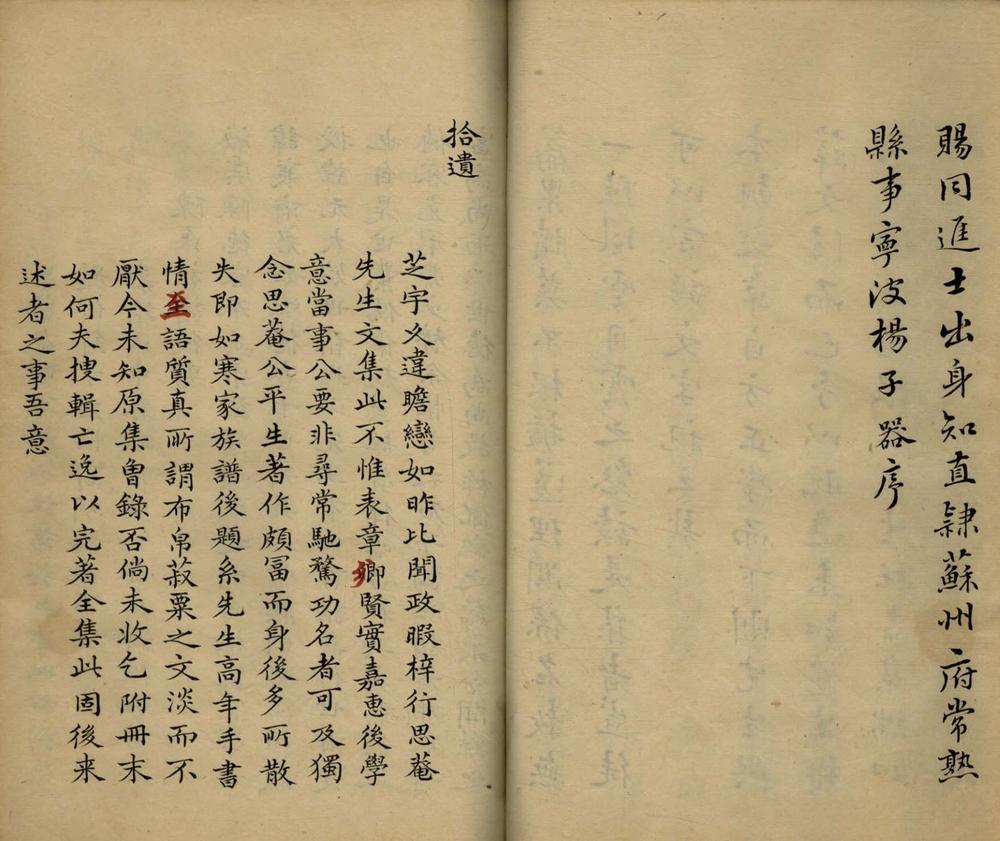 賜同進士出身知直隸蘇州府常熟
縣事寧波楊子器序
拾遺
芝宇久違瞻戀如昨比聞政暇梓行思菴
先生文集此不惟表章鄉賢實嘉惠後學
意當事公要非尋常馳騖功名者可及獨
念思菴公平生著作頗冨而身後多所散
失即如寒家族譜後題系先生高年手書
情至語質真所謂布帛菽粟之文淡而不
厭今未知原集曾錄否倘未收乞附冊末
如何夫搜輯亡逸以完著全集此固後来
述者之事吾意